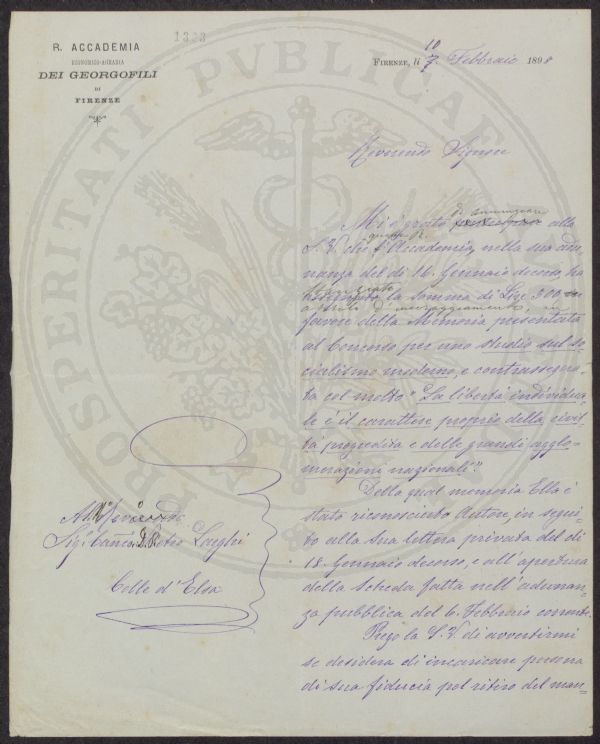 R. ACCADEMIA
ECONOMICO-AGRARIA
DEI GEORGOFILI
DI
FIRENZE
1323
PROSPERITATI PVBLICAE
FIRENZE, li 10 Febbraio 1898
Reverendo Signore
Mi è grato di annunziare alla
S. V. che questa R. Accademia, nella sua adu-
nanza del dì 16 Gennaio decorso, ha
stanziato la somma di Lire 300
a titolo d'incoraggiamento, in
favore della Memoria presentata
al Concorso per uno studio sul so-
cialismo moderno, e contrassegna-
ta col motto "La libertà individua-
le è il carattere proprio della civil-
tà progredita e delle grandi agglo-
merazioni nazionali".
Della qual memoria Ella è
stato riconosciuto Autore, in segui-
to alla sua lettera privata del dì
18 Gennaio decorso, e all'apertura
della Scheda fatta nell'adunan-
za pubblica del 6 Febbraio corrente.
Prego la S. V. di avvertirmi
se desidera di incaricare persona
di sua fiducia pel ritiro del man-
Al
Sig.
Colle d'Elsa